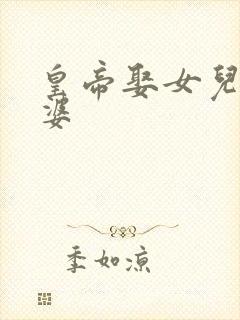 皇帝娶女兒
婆
季如涼